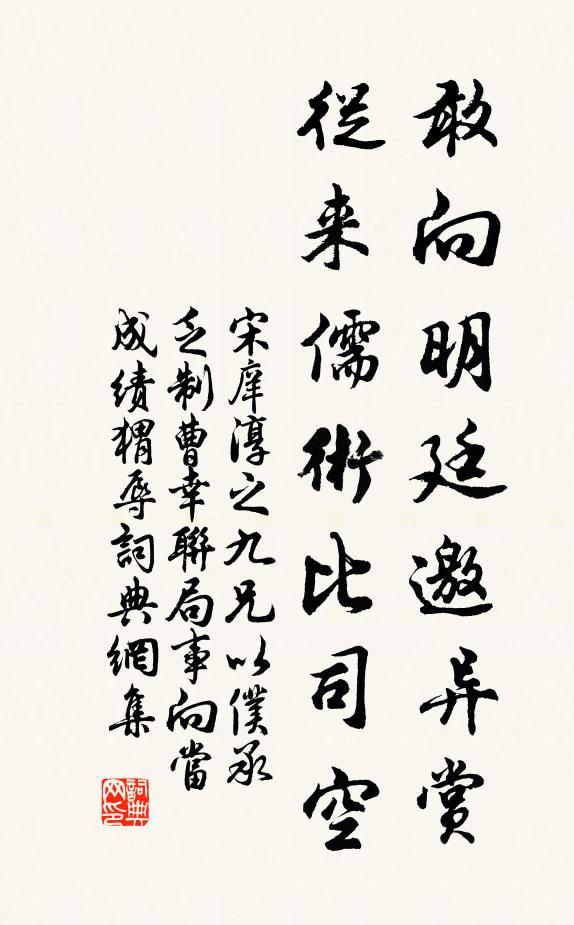 敢向明廷邀异賞
從来儒術比司空
宋庠淳之九兄以僕承
乏制曹幸聯局事向當
成績猬辱詞典網集
詞典网印